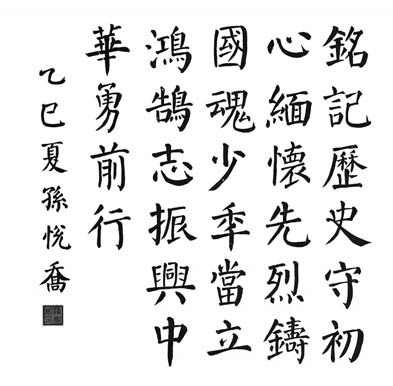 銘記歷史守初
心緬懷先烈鑄
國魂少秊當立
鴻鵠志振興中
華勇前行
乙巳夏孫悅喬